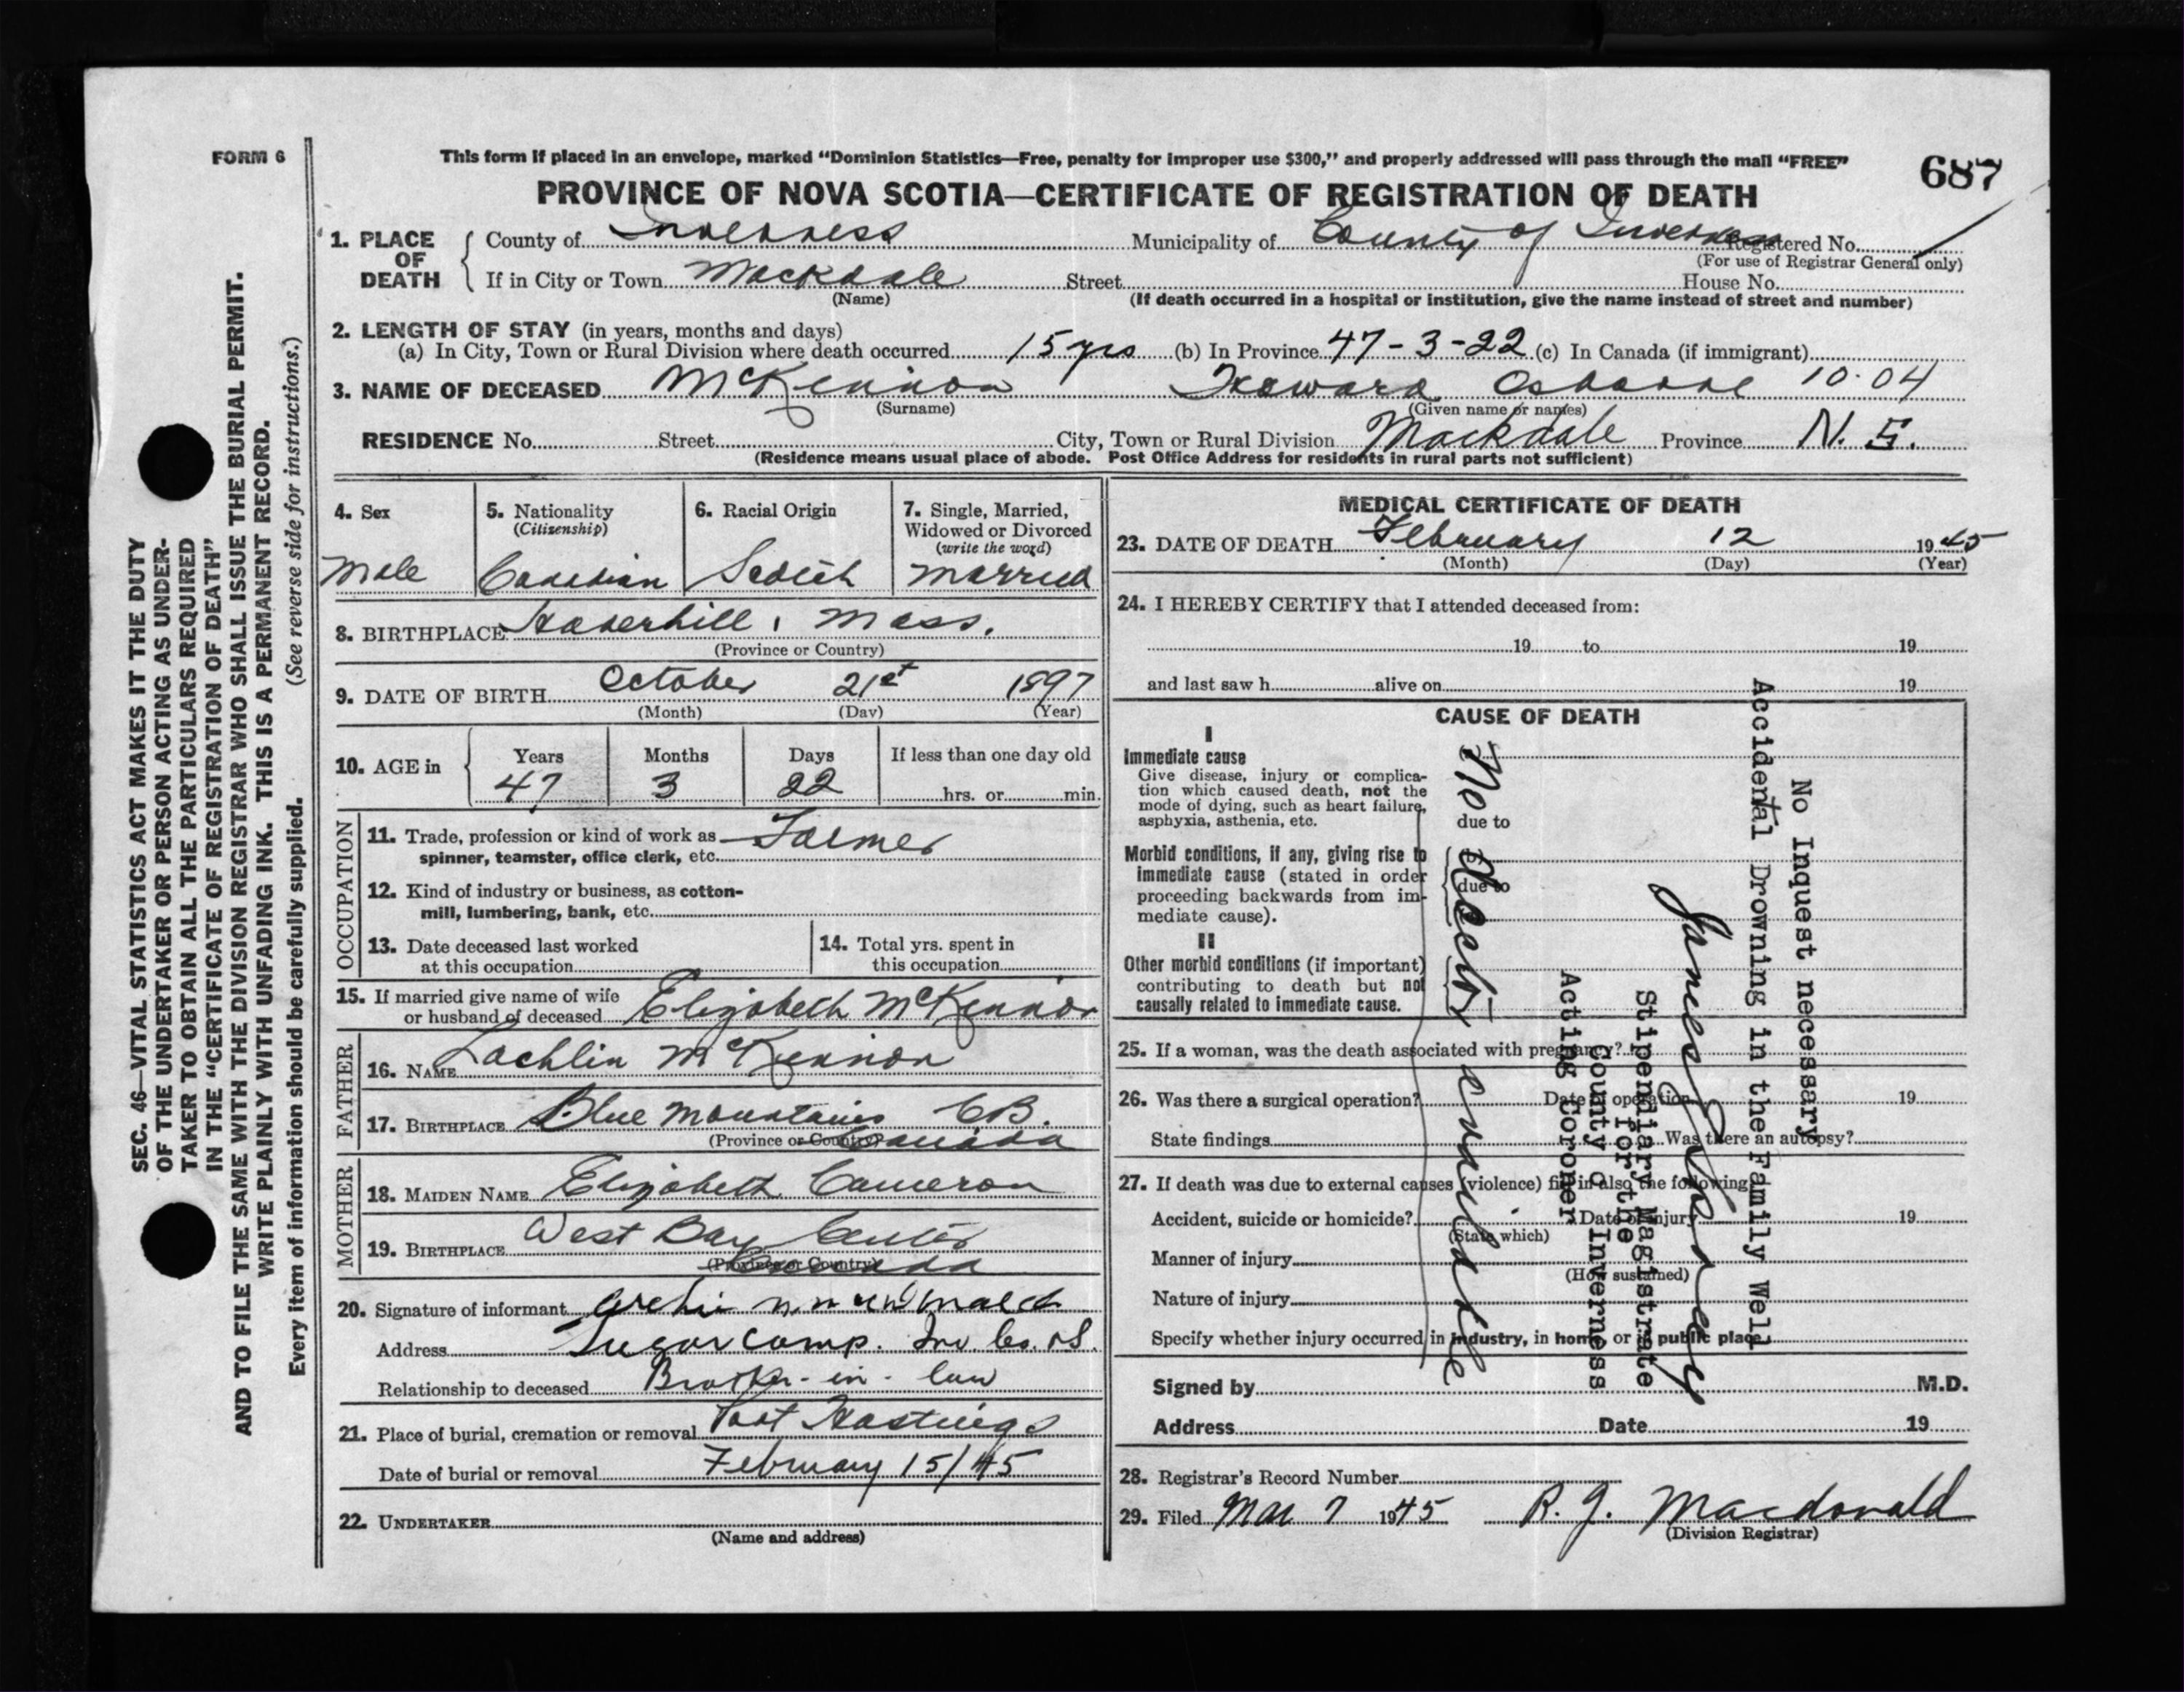 FORM 6
This form if placed in an envelope, marked "Dominion Statistics—Free, penalty for improper use $300," and properly addressed will pass through the mail "FREE"
687
PROVINCE OF NOVA SCOTIA—CERTIFICATE OF REGISTRATION OF DEATH
1. PLACE OF DEATH
County of Inverness Municipality of County of Inverness Registered No.
(For use of Registrar General only)
If in City or Town Mackdale Street House No.
(Name) (If death occurred in a hospital or institution, give the name instead of street and number)
2. LENGTH OF STAY (in years, months and days)
(a) In City, Town or Rural Division where death occurred 15 yrs (b) In Province 47-3-22 (c) In Canada (if immigrant)
3. NAME OF DECEASED McKennon Howard Osborne 10.04
(Surname) (Given name or names)
RESIDENCE No. Street City, Town or Rural Division Mackdale Province N. S.
(Residence means usual place of abode. Post Office Address for residents in rural parts not sufficient)
4. Sex
Male
5. Nationality
(Citizenship)
Canadian
6. Racial Origin
Scotch
7. Single, Married,
Widowed or Divorced
(write the word)
married
8. BIRTHPLACE Haverhill, Mass.
(Province or Country)
9. DATE OF BIRTH October 21st 1897
(Month) (Day) (Year)
10. AGE in
Years Months Days If less than one day old
47 3 22 hrs. or min.
OCCUPATION
11. Trade, profession or kind of work as Farmer
spinner, teamster, office clerk, etc.
12. Kind of industry or business, as cotton-
mill, lumbering, bank, etc.
13. Date deceased last worked
at this occupation
14. Total yrs. spent in
this occupation
15. If married give name of wife
or husband of deceased Elizabeth McKennon
FATHER
16. NAME Lachlin McKennon
17. BIRTHPLACE Blue Mountains C.B.
(Province or Country) Canada
MOTHER
18. MAIDEN NAME Elizabeth Cameron
19. BIRTHPLACE West Bay Center
(Province or Country) Canada
20. Signature of informant Archie
Address Sugar Camp. Inv. Co. N.S.
Relationship to deceased Brother-in-law
21. Place of burial, cremation or removal Port Hastings
Date of burial or removal February 15/45
22. UNDERTAKER
(Name and address)
MEDICAL CERTIFICATE OF DEATH
23. DATE OF DEATH February 12 1945
(Month) (Day) (Year)
24. I HEREBY CERTIFY that I attended deceased from:
19 to 19
and last saw h alive on 19
CAUSE OF DEATH
I
Immediate cause
Give disease, injury or complica-
tion which caused death, not the
mode of dying, such as heart failure,
asphyxia, asthenia, etc.
due to
Morbid conditions, if any, giving rise to
immediate cause (stated in order
proceeding backwards from im-
mediate cause).
due to
II
Other morbid conditions (if important)
contributing to death but not
causally related to immediate cause.
No Doctor available
No Inquest necessary
Accidental Drowning in the Family Well
James
Stipendiary Magistrate
for the
County of Inverness
Acting Coroner
25. If a woman, was the death associated with pregnancy?
26. Was there a surgical operation? Date of operation 19
State findings Was there an autopsy?
27. If death was due to external causes (violence) fill in also the following
Accident, suicide or homicide? Date of injury 19
(State which)
Manner of injury
(How sustained)
Nature of injury
Specify whether injury occurred in industry, in home, or in public place
Signed by M.D.
Address Date 19
28. Registrar's Record Number
29. Filed Mar 7 1945 R. J. Macdonald
(Division Registrar)
SEC. 46—VITAL STATISTICS ACT MAKES IT THE DUTY
OF THE UNDERTAKER OR PERSON ACTING AS UNDER-
TAKER TO OBTAIN ALL THE PARTICULARS REQUIRED
IN THE "CERTIFICATE OF REGISTRATION OF DEATH"
AND TO FILE THE SAME WITH THE DIVISION REGISTRAR WHO SHALL ISSUE THE BURIAL PERMIT.
WRITE PLAINLY WITH UNFADING INK. THIS IS A PERMANENT RECORD.
Every item of information should be carefully supplied. (See reverse side for instructions.)